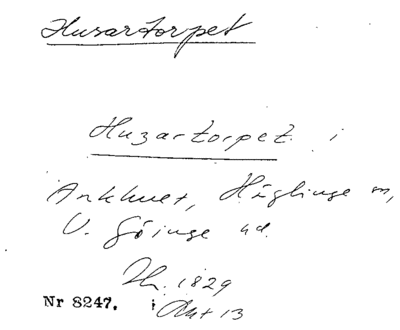 Husartorpet
Huzartorpet i
Ankhuet, Häglinge sn,
V. Göinge hd.
Jb. 1829
Nr 8247. i Akt 13